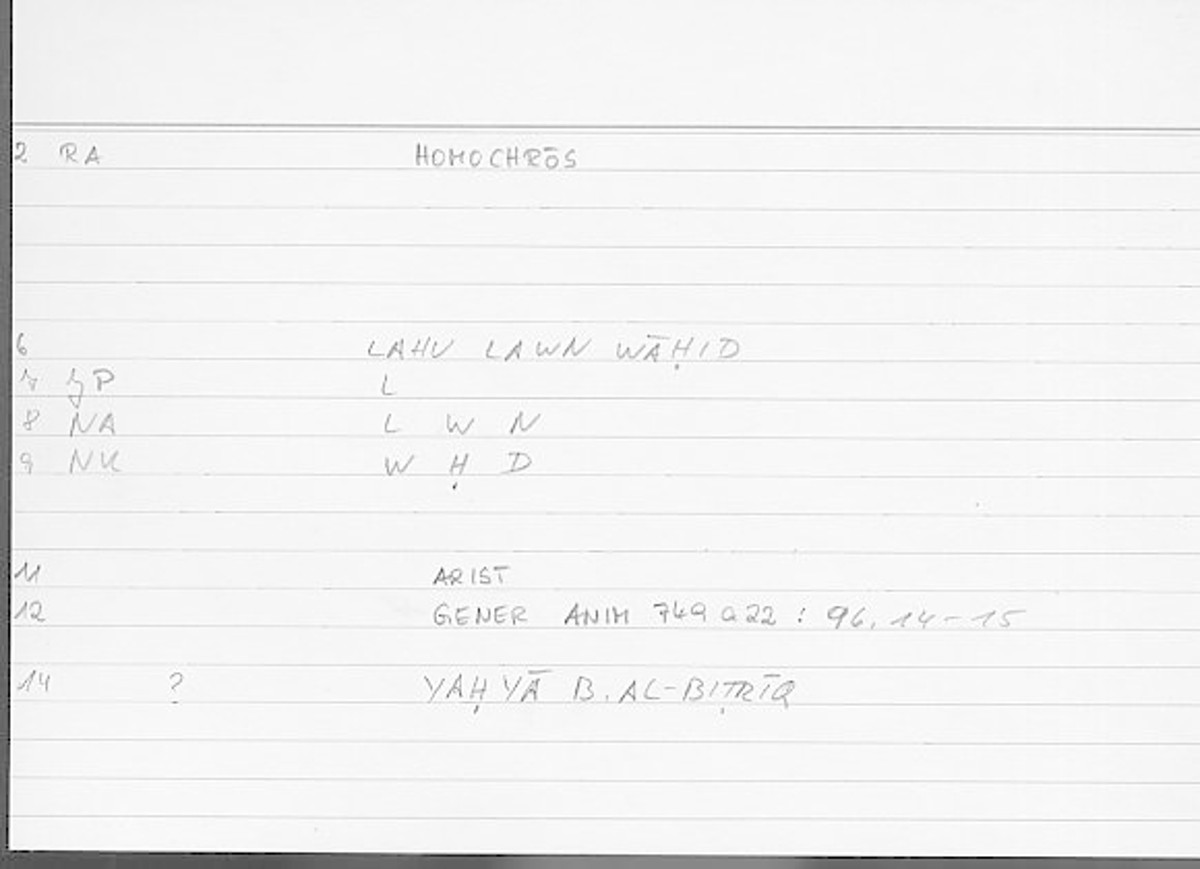 2 RA HOMOCHRŌS
6 LAHU LAWN WĀḤID
7 JP L
8 NA L W N
9 NK W Ḥ D
11 ARIST
12 GENER ANIM 749 a 22 : 96, 14-15
14 ? YAḤYĀ B. AL-BIṬRĪQ